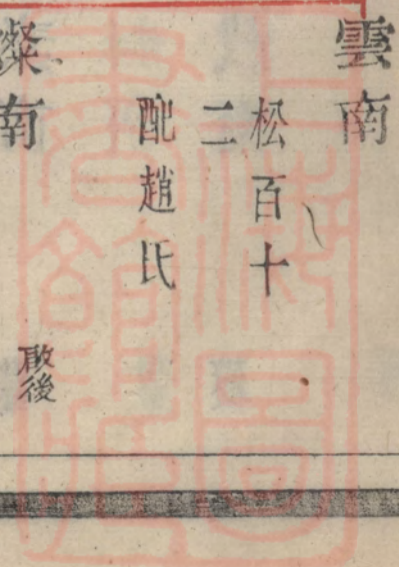 雲南
松百十
二
配趙氏
南
後
上海圖
書館